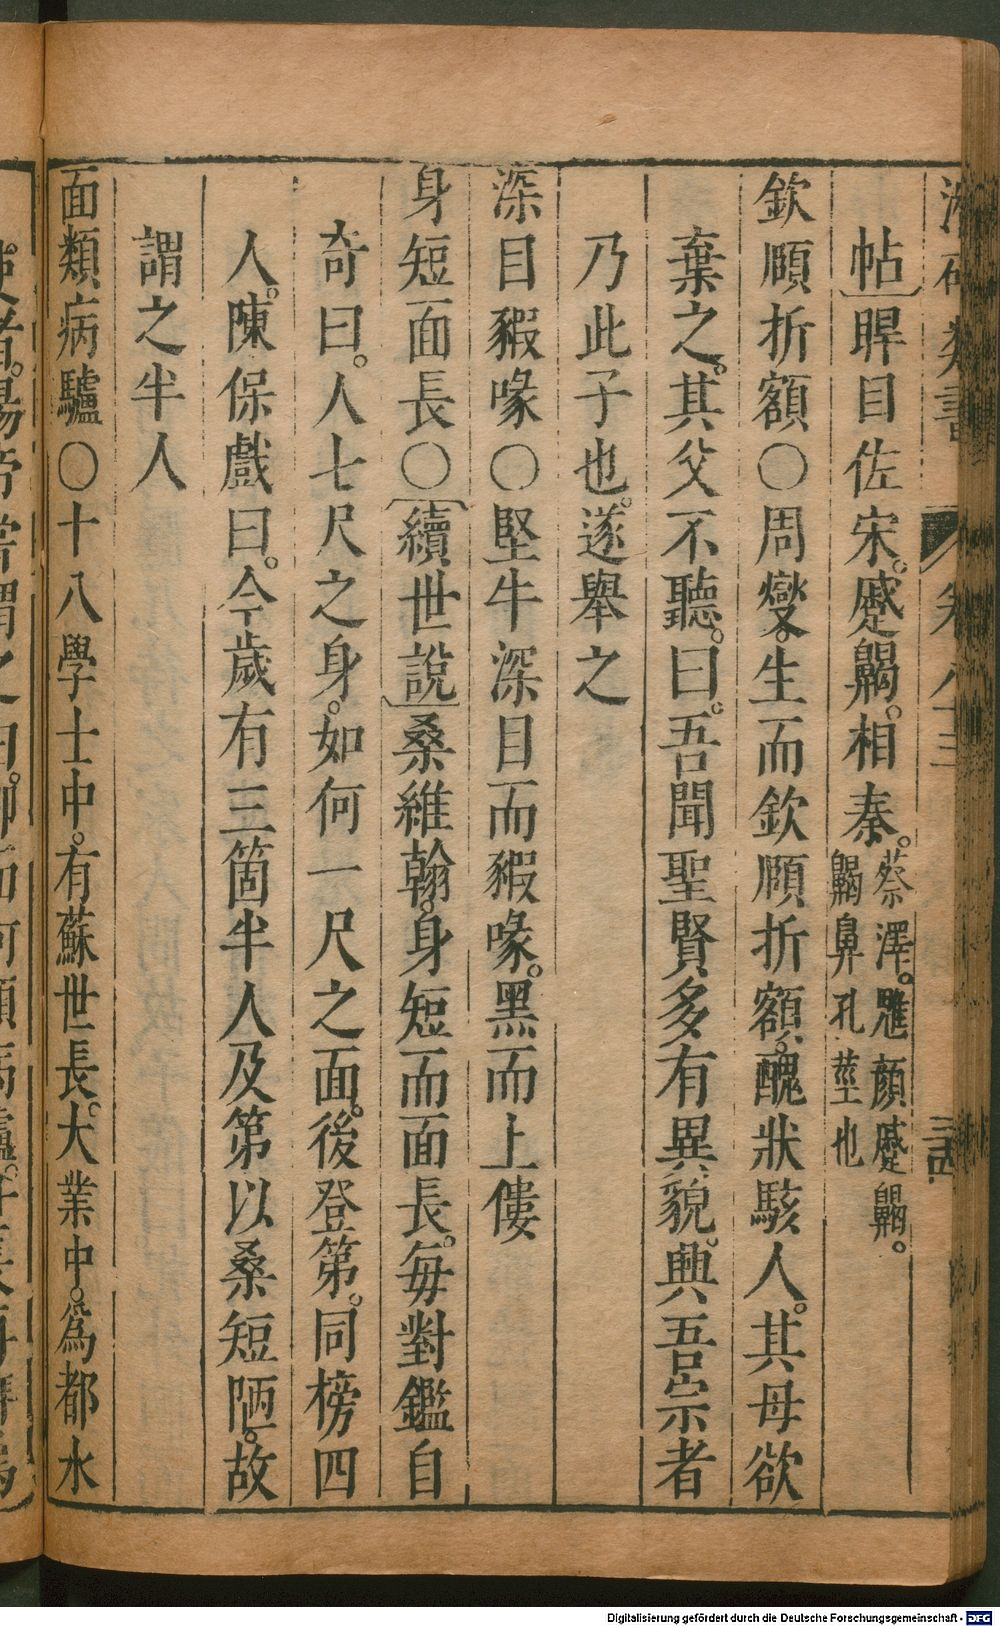 類書
卷八十三
帖〕睅目佐宋。蹙齃。相秦。蔡澤。雕顏蹙齃。
齃鼻孔莖也
欽頤折額○周燮。生而欽頤折額。醜狀駭人。其母欲
棄之。其父不聽。曰。吾聞聖賢多有異貌。興吾宗者
乃此子也。遂舉之
深目豭喙○堅牛深目而豭喙。黑而上僂
身短面長○〔續世說〕桑維翰。身短而面長。每對鑑自
奇曰。人七尺之身。如何一尺之面。後登第。同榜四
人。陳保戲曰。今歲有三箇半人及第以桑短陋。故
謂之半人
面類病驢○十八學士中。有蘇世長。大業中。為都水
Digitalisierung gefördert durch die Deutsche Forschungsgemeinschaft - DFG